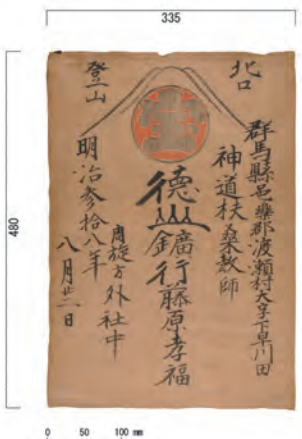 335
480
北口
群馬縣邑樂郡渡瀬村大字下早川田
神道扶桑教師
德山鑛行藤原孝福
周旋方外社中
登山
明治参拾八年
八月日
0 50 100 mm